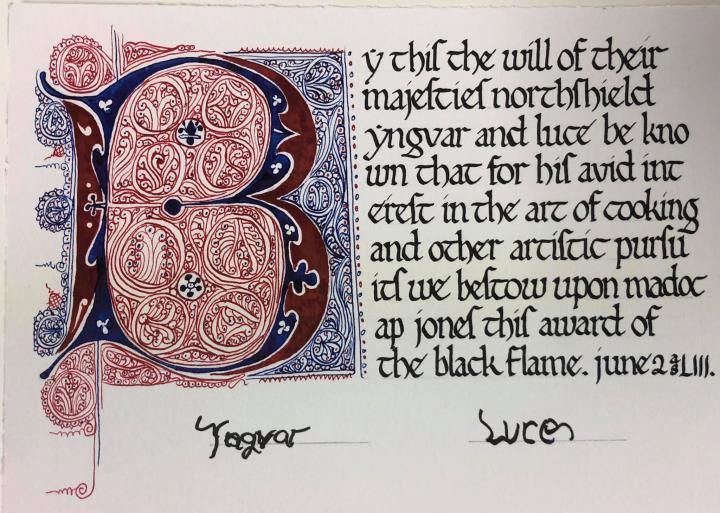 Bẏ thiſ the will of their
majeſtieſ northſhield
ẏngvar and luce be kno
wn that for hiſ avid int
ereſt in the art of cooking
and other artiſtic purſu
itſ we beſtow upon madoc
ap joneſ thiſ award of
the black flame. june 2 LIII.
Yngvar Luce